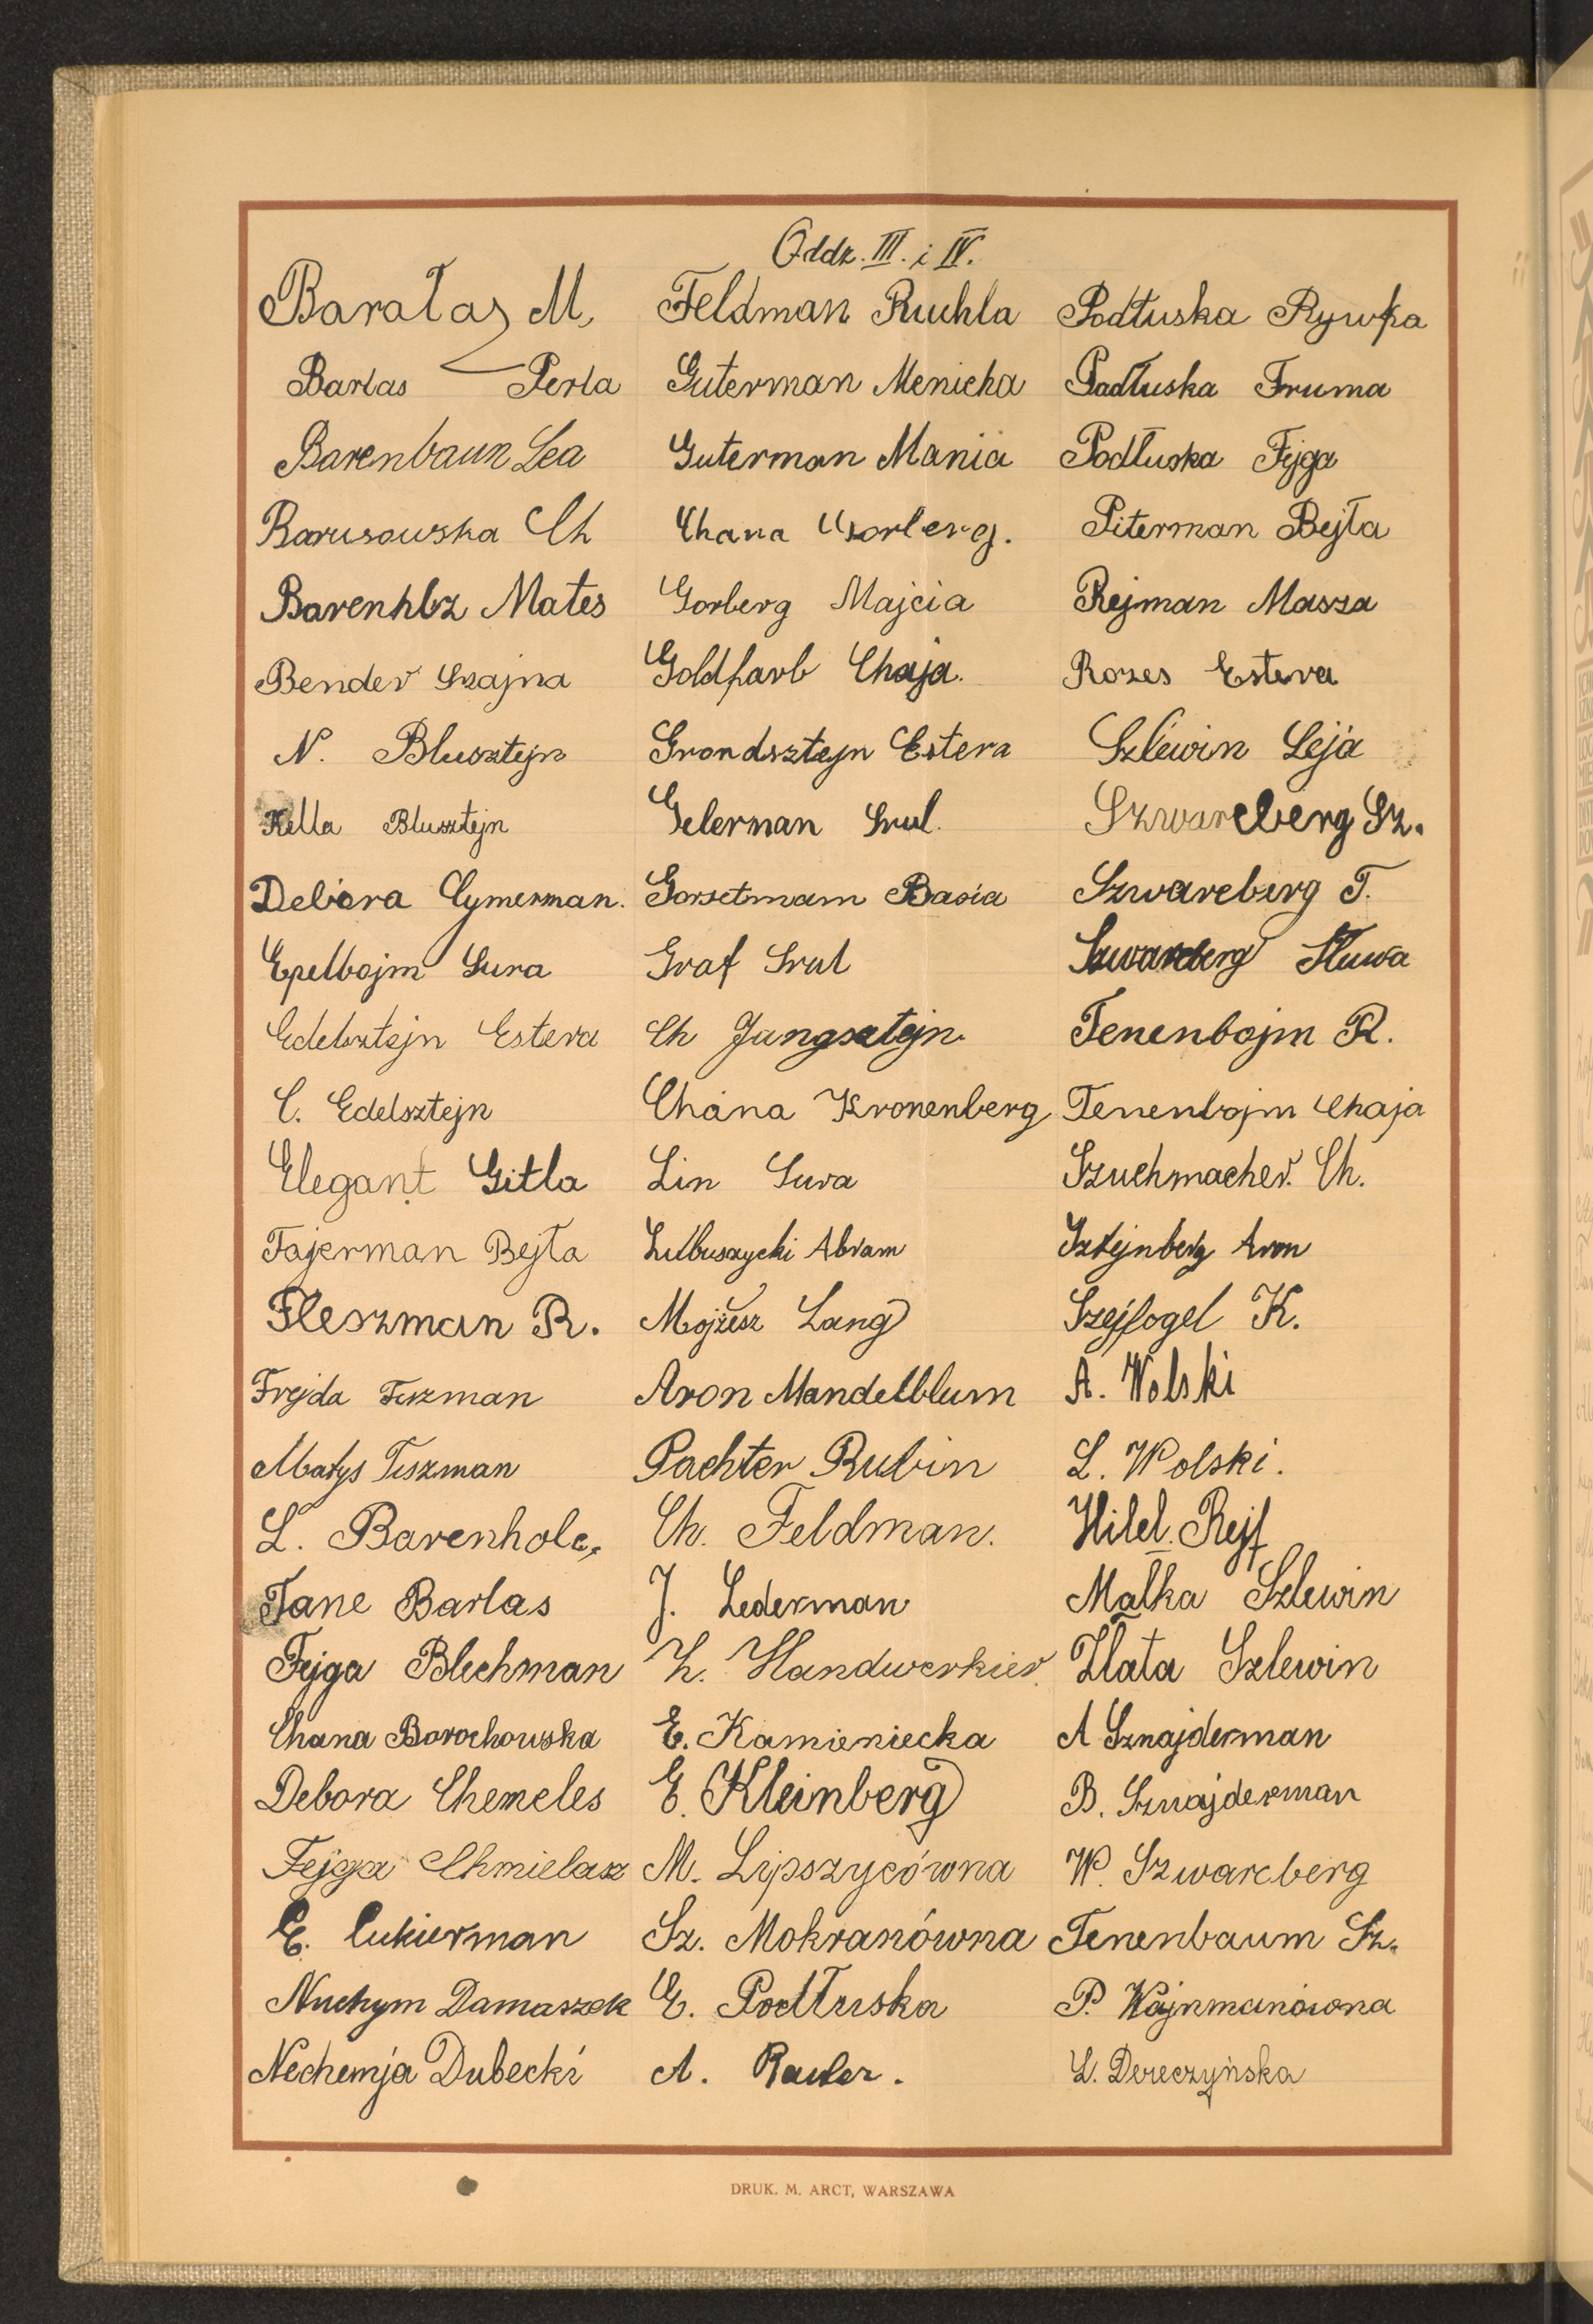 Oddz. III. i IV.
Barałaz M,
Barlas Perla
Barenbaun Lea
Barusowska Ch
Barenhlz Mates
Bender Szajna
N. Blusztejn
Kella Blusztejn
Debora Cymerman.
Epelbojm Sura
Edelsztejn Estera
C. Edelsztejn
Elegant Gitla
Fajerman Bejła
Fleszman R.
Frejda Fiszman
Matys Fiszman
L. Barenholc,
Tane Barlas
Fejga Blechman
Chana Borochowska
Debora Chemeles
Fejga Chmielasz
E. Cukierman
Nuchym Damaszek
Nechemja Dubecki
Feldman Ruchla
Guterman Menicha
Guterman Mania
Chana Gorberg.
Gorberg Majcia
Goldfarb Chaja.
Grondsztejn Estera
Gelerman Srul.
Gorsetmam Basia
Graf Srul
Ch Jungsztejn.
Chana Kronenberg
Lin Sura
Lubuszycki Abram
Mojżesz Lang
Aron Mandelblum
Pachter Rubin
Ch. Feldman.
J. Lederman
H. Handwerkier.
E. Kamieniecka
E. Kleinberg
M. Lipszycówna
Sz. Mokranówna
E. Podłuska
A.
Podłuska Rywka
Padłuska Fruma
Podłuska Fejga
Piterman Bejła
Rejman Masza
Rozes Estera
Szlewin Leja
Szwarcberg Sz.
Szwarcberg T.
Szwarcberg
Tenenbojm R.
Tenenbojm Chaja
Szuchmacher. Ch.
Sztejnberg Aron
Szejfogel K.
A. Wolski
L. Wolski.
Hilel. Rejf
Małka Szlewin
Złata Szlewin
A Sznajderman
B. Sznajderman
W. Szwarcberg
Tenenbaum Sz.
P. Wajnmanówna
L. Dereczyńska
DRUK. M. ARCT, WARSZAWA